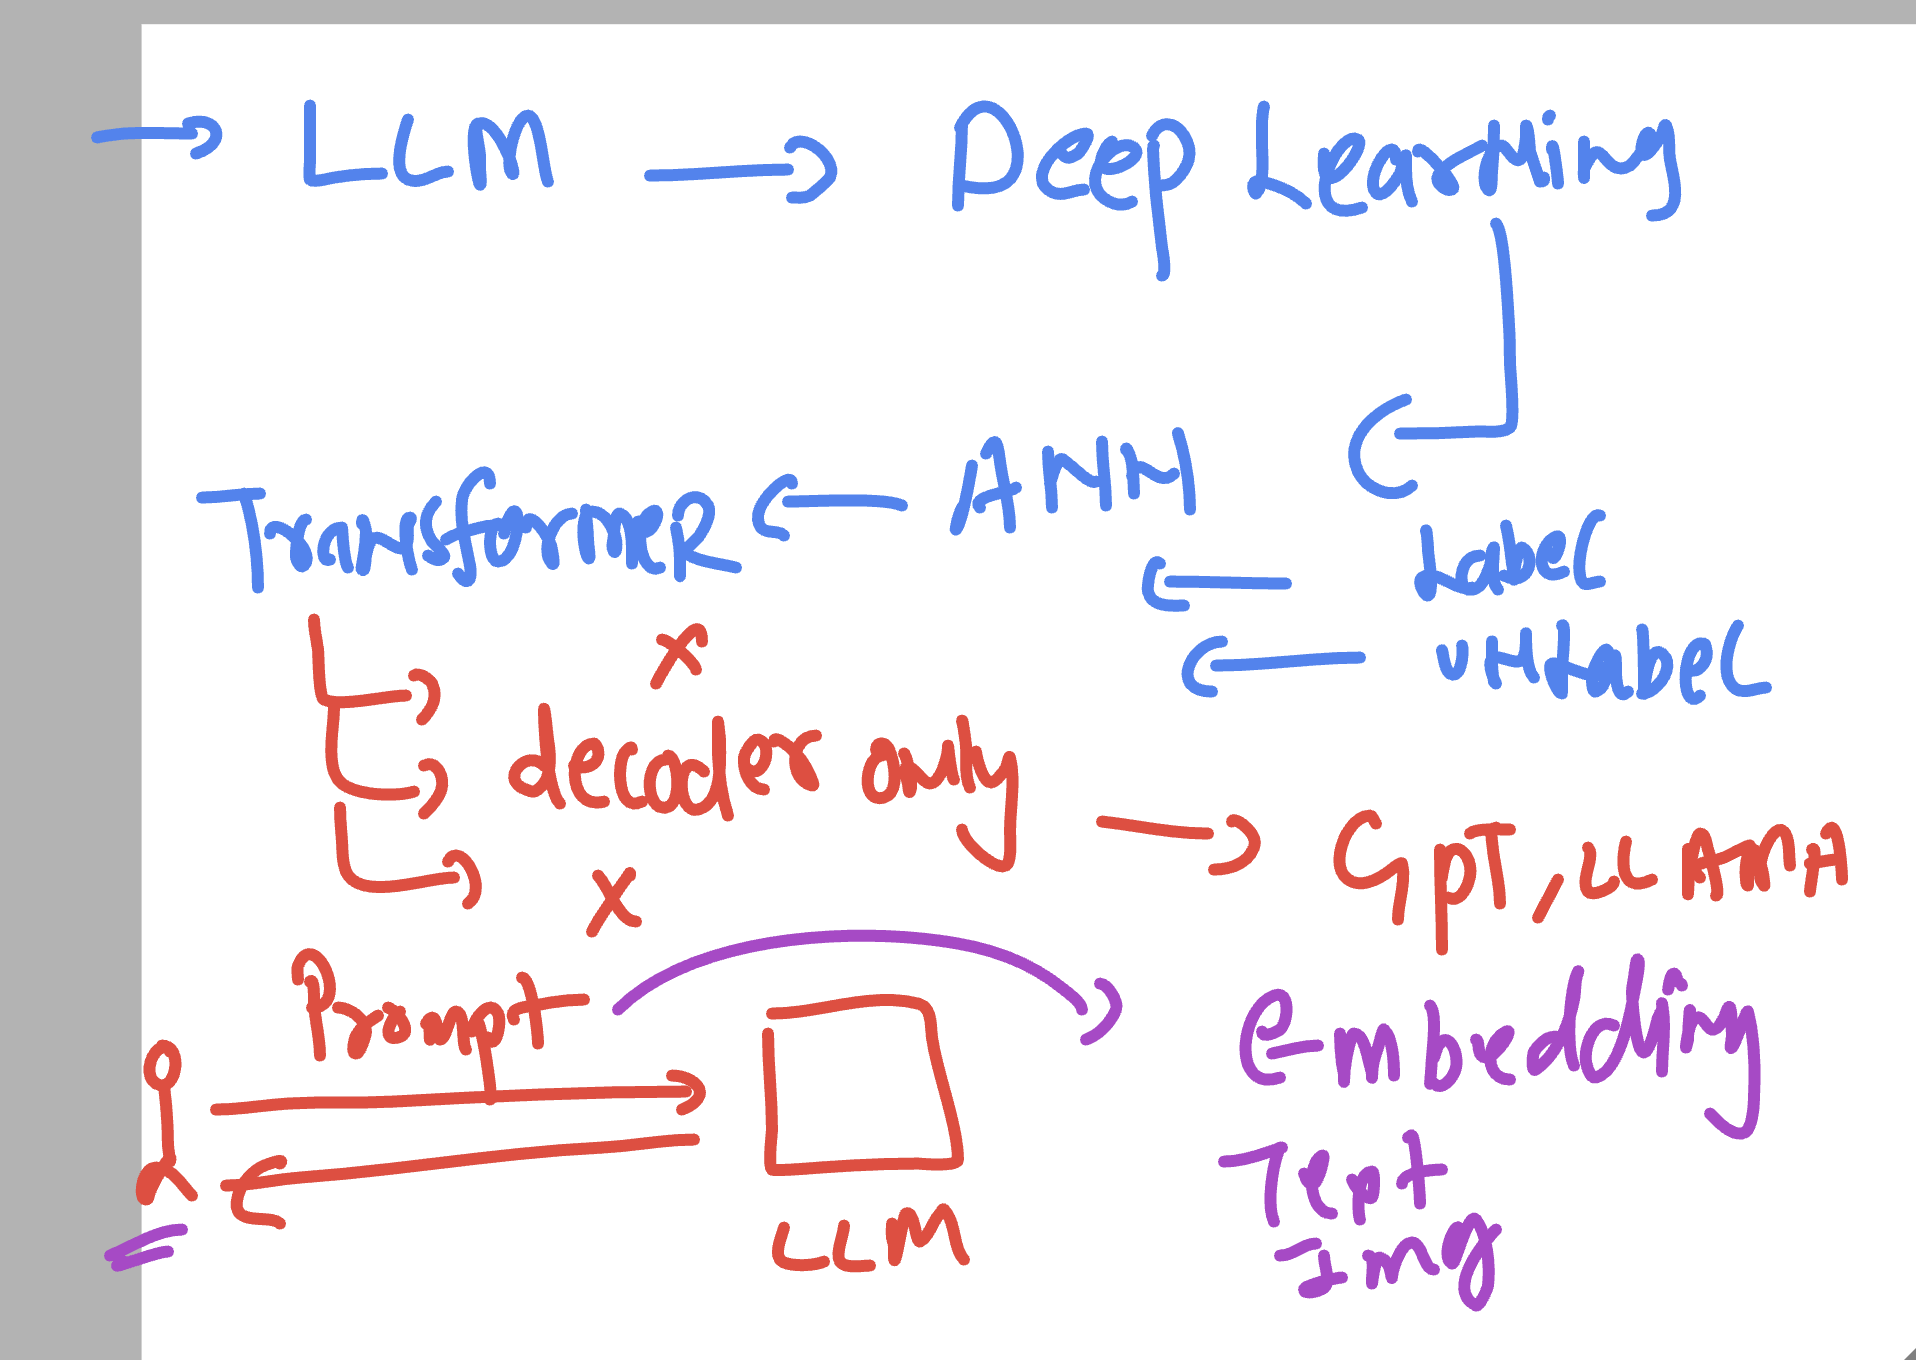 → LLM → Deep Learning
Transformer ← ANN
← Label
← UNLabel
x
decoder only → GPT, LLAMA
x
Prompt
embedding
Text
Img
LLM